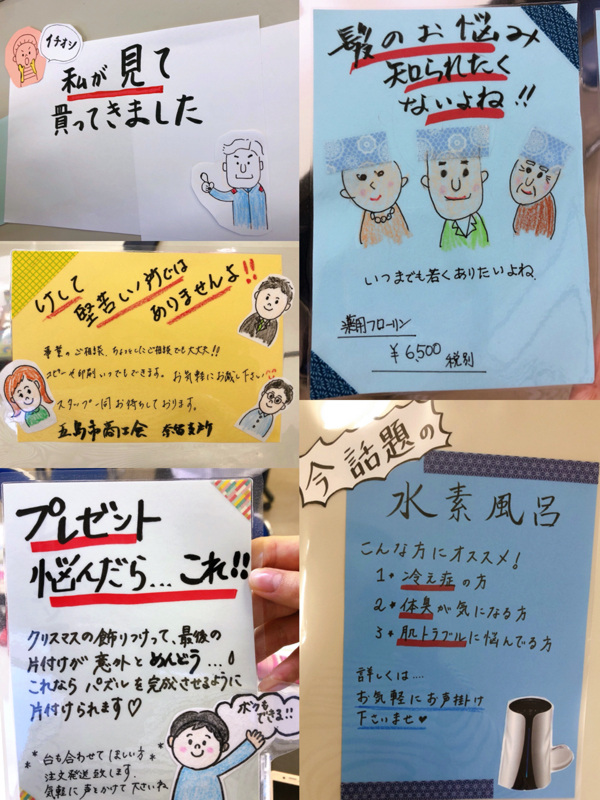 イチオシ
私が見て
買ってきました
髪のお悩み
知られたく
ないよね!!
いつまでも若くありたいよね。
薬用フローリン
¥6,500 税別
けして
堅苦しい所では
ありませんよ!!
事業のご相談、ちょっとしたご相談でも大丈夫!!
コピーや印刷いつでもできます。お気軽にお越し下さい
スタッフ一同お待ちしております。
五島市商工会 奈留支所
プレゼント
悩んだら…これ!!
クリスマスの飾りつけって、最後の
片付けが意外とめんどう…!
これなら パズルを完成させるように
片付けられます♡
ボクも
できる!!
*台も合わせてほしい方*
注文発送致します。
気軽に声とかけて大さいね
今話題の
水素風呂
こんな方にオススメ!
1* 冷え症の方
2* 体臭が気になる方
3* 肌トラブルに悩んでる方
詳しくは….
お気軽にお声掛け
下さいませ♥